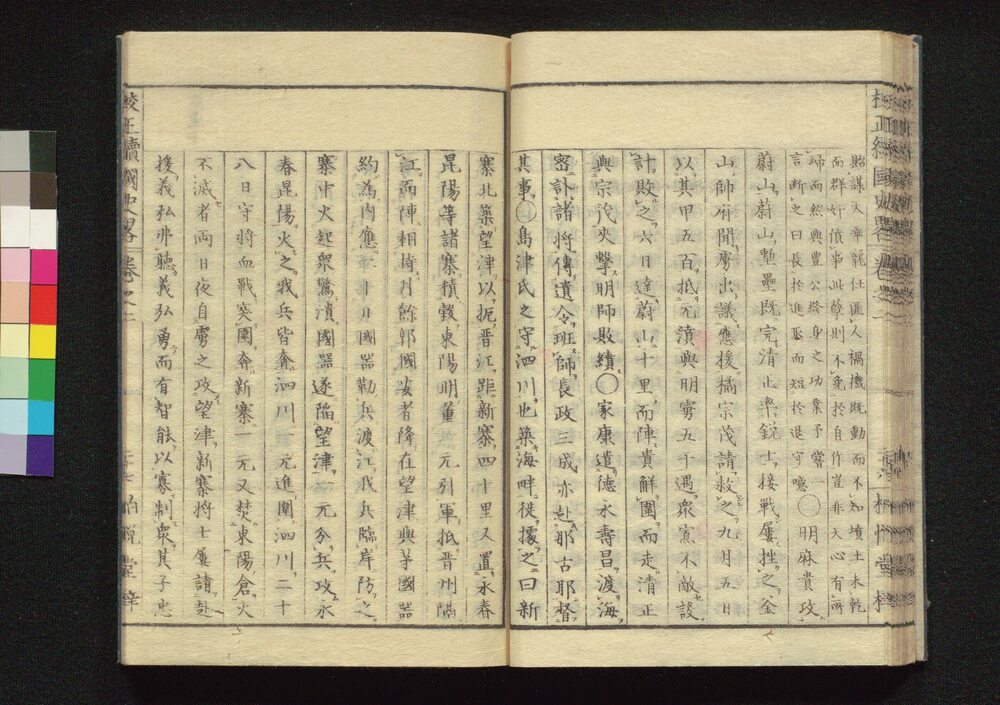 校正續國史略 卷之二
貽謀大率寵任匪人禍機既動而不知墳土未乾
而群奸僨事此孽則不免於自作豈非天心有所
歸而然與豊公終身之功業予嘗一
言斷之曰長於進取而短於退守噫〇明麻貴攻
蔚山蔚山整壘既完清正率銳士接戰屢挫之釜
山師府聞虜出議應援橘宗茂請救之九月五日
以其甲五百抵元濆與明虜五千遇衆寡不敵設
計敗之六日達蔚山十里而陣貴解圍而走清正
與宗茂夾擊明師敗績〇家康遣德永壽昌渡海
密訃諸將傳遺令班師長政三成亦赴那古耶督
其事〇島津氏之守泗川也築海畔徙據之曰新
寨北築望津以扼晋江距新寨四十里又置永春
昆陽等諸寨積穀東陽明董一元引軍抵晋州隔
江而陣相持月餘郭國安者降在望津與茅國器
約為内應二十日國器勒兵渡江我兵臨岸防之
寨中火起衆驚潰國器遂陷望津一元分兵攻永
春昆陽火之我兵皆奔泗川一元進圍泗川二十
八日守將血戰突圍奔新寨一元又焚東陽倉火
不滅者兩日夜自虜之攻望津新寨將士屢請赴
援義弘弗聽義弘勇而有智能以寡制衆其子忠
校正續國史略 卷之二